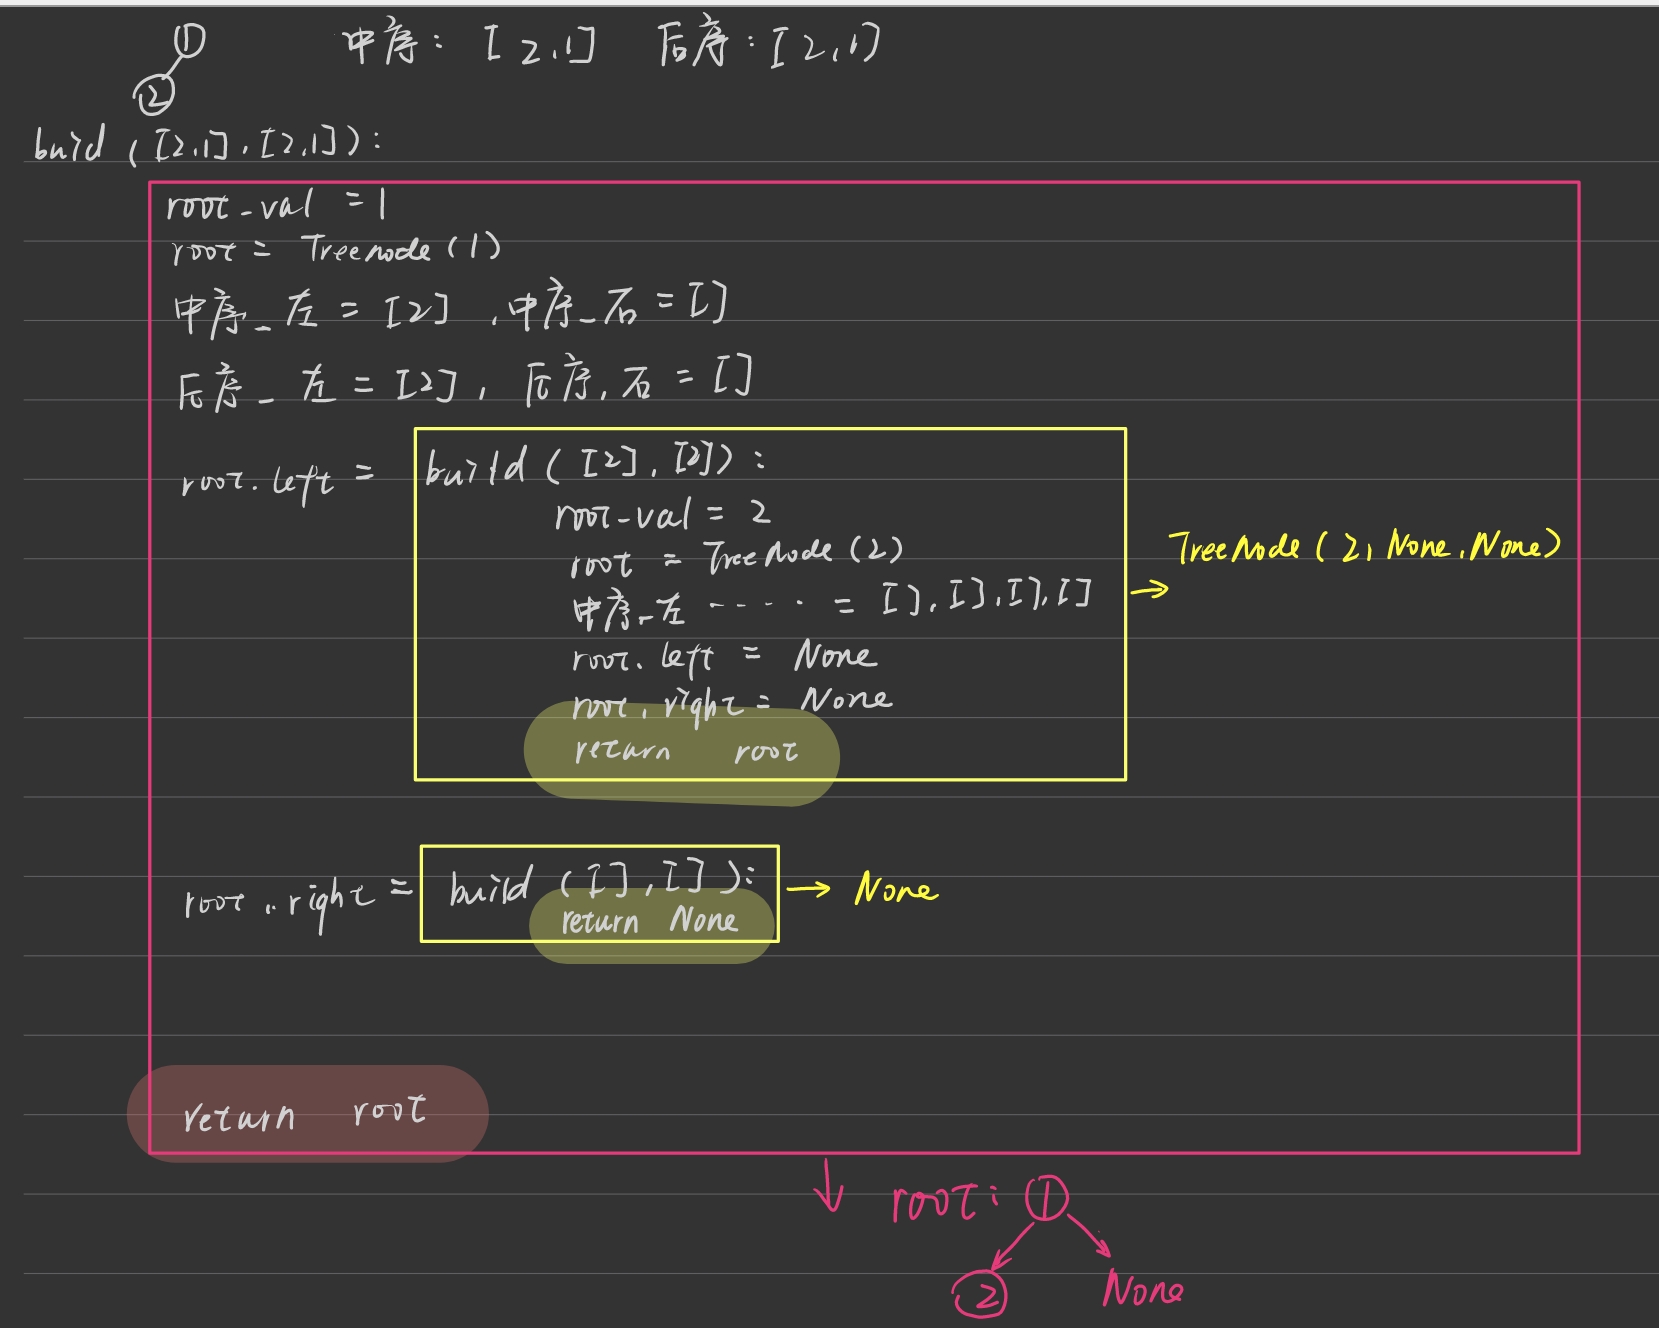 ① 中序: [2,1] 后序: [2,1]
②
buid ([2,1], [2,1]):
root_val = 1
root = Treenode (1)
中序_左 = [2], 中序_右 = []
后序_左 = [2], 后序_右 = []
root.left = build ([2], [2]):
root_val = 2
root = TreeNode (2)
中序_左 ····· = [], [], [], []
root.left = None
root.right = None
return root
→ TreeNode (2, None, None)
root.right = build ([], []):
return None
→ None
return root
↓ root: ①
② None